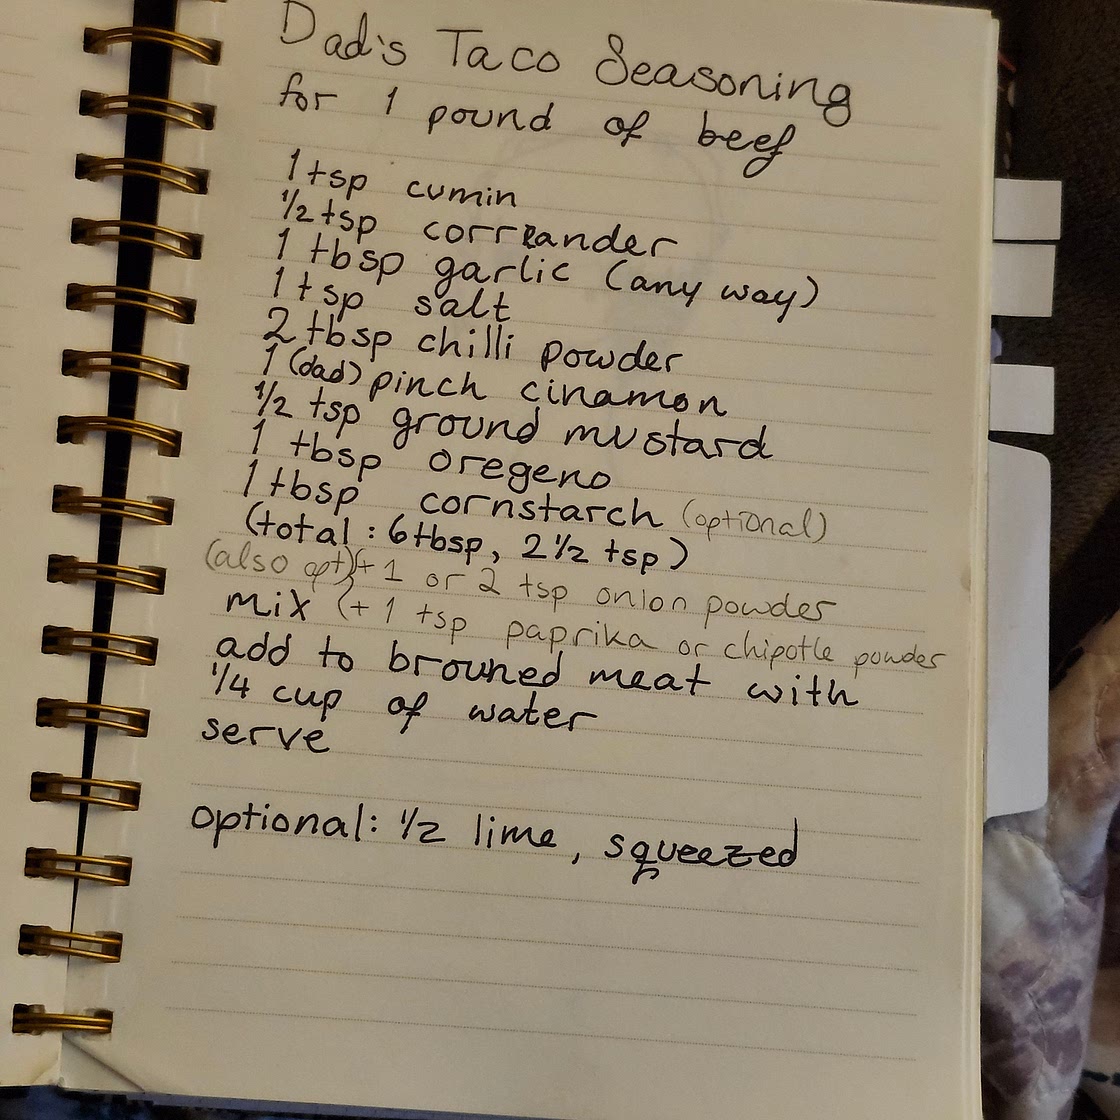 Dad's Taco Seasoning
for 1 pound of beef
1 tsp cumin
1/2 tsp correander
1 tbsp garlic (any way)
1 tsp salt
2 tbsp chilli powder
1 (dad) pinch cinamon
1/2 tsp ground mustard
1 tbsp oregeno
1 tbsp cornstarch (optional)
(total: 6 tbsp, 2 1/2 tsp)
(also opt)(+ 1 or 2 tsp onion powder
mix (+ 1 tsp paprika or chipotle powder
add to browned meat with
1/4 cup of water
serve
optional: 1/2 lime, squeezed